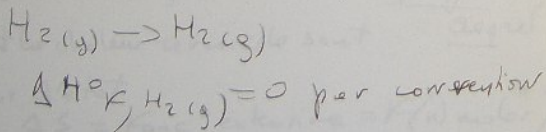 H₂(g) -> H₂(g)
ΔH°f, H₂(g) = 0 per convention